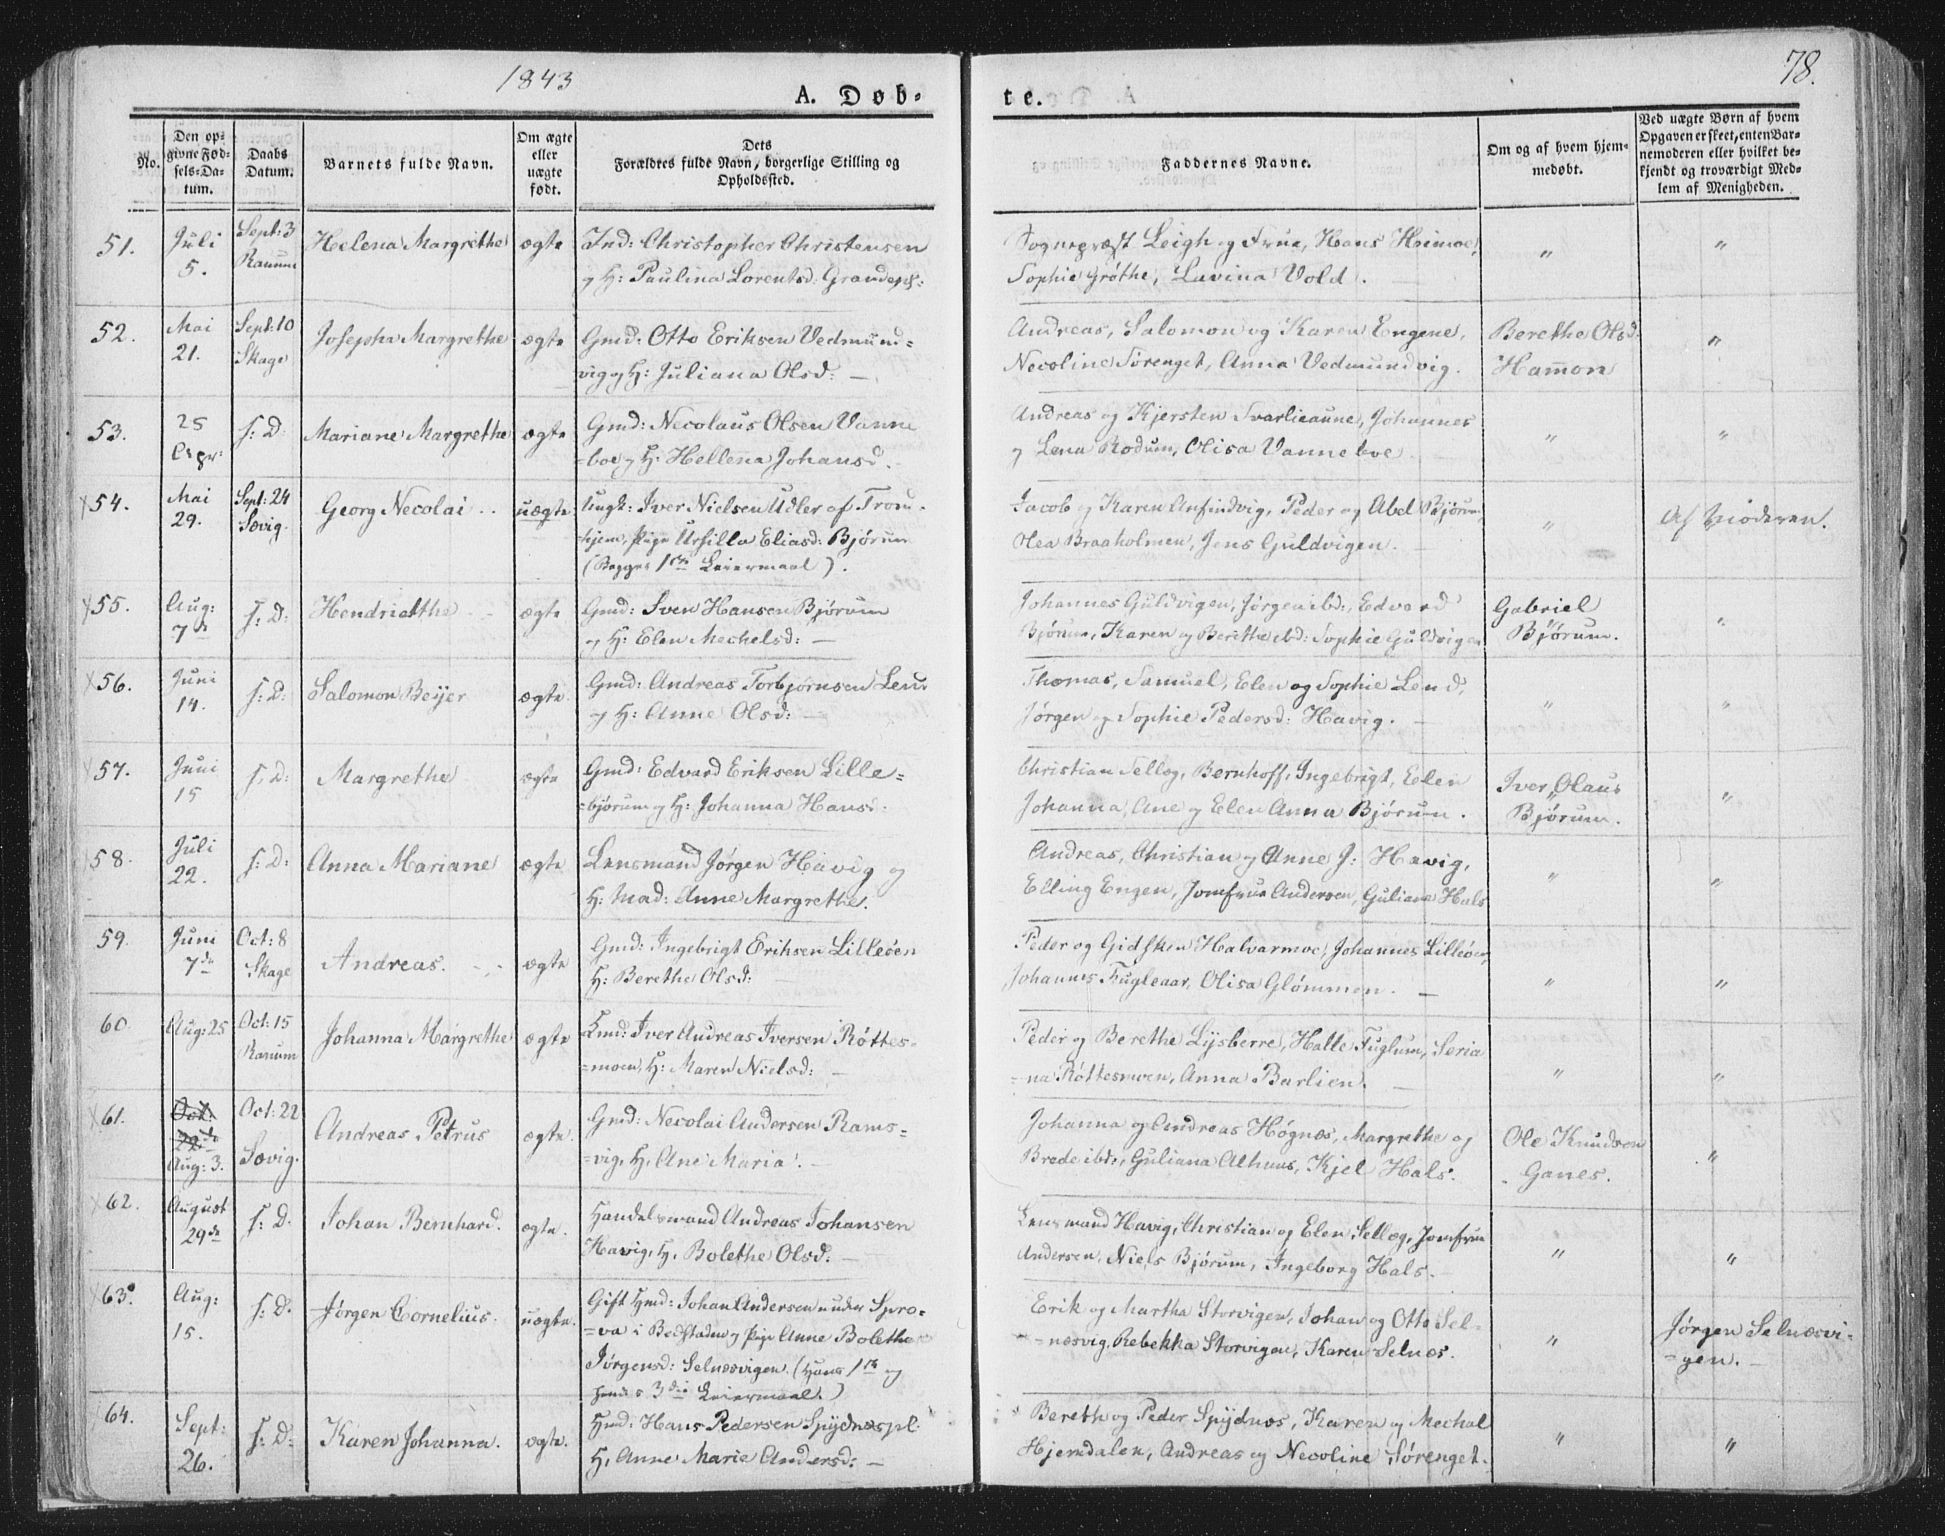 1843
78.
A. Døb-
te.
No.
Den op-
givne Fød-
sels-Da-
tum.
Daabs
Datum.
Barnets fulde Navn.
Om ægte
eller
uægte
født.
Dets
Forældres fulde Navn, borgerlige Stilling og
Opholdssted.
Faddernes Navne.
Om og af hvem hjem-
medøbt.
Ved uægte Børn af hvem
Opgaven er skeet, enten Bar-
nemoderen eller hvilket be-
kjendt og troværdigt Med-
lem af Menigheden.
51.
Juli
5.
Sept: 3
Ranum
Helena Margrethe
ægte
Ind: Christopher Christensen
og H: Paulina Lorentsd:
Sognepræst Leigh og Frue, Hans Heimoe,
Sophie Grøthe, Lavina Vold.
"
"
52.
Mai
21.
Sept: 10
Skage
Josepha Margrethe
ægte
Gmd: Otto Eriksen Vedmund=
vig og H: Juliana Olsd: —
Andreas, Salomon og Karen Engene,
Necoline Sørenget, Anna Vedmundvig.
Berethe Olsd:
Hammon
"
53.
25
Apr:
s: D:
Mariane Margrethe
ægte
Gmd: Necolaus Olsen Vanne
=boe og H: Hellena Johansd.
Andreas og Kjersten Svarlieaune, Johannes
og Lena Rodum, Olisa Vanneboe
"
"
54.
Mai
29.
Sept: 24
Sævig.
Georg Necolai
uægte
Ungk: Iver Nielsen Udler af Tron
hjem, Pige Ursilla Eliasd: Bjørum
(Begges 1ste Leiermaal).
Jacob og Karen Anfindvig, Peder og Abel Bjørum,
Olea Braaholmen, Jens Guldvigen. —
"
Af Moderen.
55.
Aug:
7de
s: D:
Hendriethe
ægte
Gmd: Sven Hansen Bjørum
og H: Elen Mechelsd: —
Johannes Guldvigen, Jørgen ibd:, Edvard
Bjørum, Karen og Berethe ibd: Sophie Guldvigen
Gabriel
Bjørum.
"
56.
Juni
14.
s: D:
Salomon Beijer
ægte
Gmd: Andreas Torbjørnsen
og H: Anne Olsd: —
Thomas, Samuel, Elen og Sophie Lend,
Jørgen og Sophie Pedersd: Havig. —
"
"
57.
Juni
15
s: D:
Margrethe
ægte
Gmd: Edvard Eriksen Lille=
=bjørum og H: Johanna Hansd:
Christian Sellæg, Bernhoff, Ingebrigt, Elen
Johanna, Ane og Elen Anna Bjørum.
Iver Olaus
Bjørum.
"
58.
Juli
22.
s: D:
Anna Mariane
ægte
Lensmand Jørgen Havig og
H: Mad: Anne Margrethe.
Andreas, Christian og Anne J: Havig,
Elling Engen, Jomfrue Andersen, Guliana Hals
"
"
59.
Juni
7de
Oct: 8
Skage
Andreas.
ægte
Gmd: Ingebrigt Eriksen Lilleøen
H: Berethe Olsd: —
Peder og Gidsken Halvarmoe, Johannes Lilleøen,
Johannes Fugleaar, Olisa Glømmen. —
"
"
60.
Aug: 25
Oct: 15
Ranum
Johanna Margrethe
ægte
Iver Andreas Iversen Røttes=
=moen, H: Maren Nielsd: —
Peder og Berethe Lysberre, Halle Fuglum, Seria
=na Røttesmoen, Anna Barlien. —
"
"
61.
Oct:
22de
Aug: 3.
Oct: 22
Sævig.
Andreas Petrus
ægte.
Gmd: Necolai Andersen Rams=
=vig, H, Ane Maria. —
Johanna og Andreas Høgnæs, Margrethe og
Brede ibd:, Guliana Alhuus, Kjel Hals.
Ole Knudsen
Ganes.
"
62.
August
29de
s: D.
Johan Bernhard.
ægte.
Handelsmand Andreas Johansen
Havig, H, Bolethe Olsd: —
Lensmand Havig, Christian og Elen Sellæg, Jomfrue
Andersen, Niels Bjørum, Ingeborg Hals. —
"
"
63.
Aug:
15.
s: D.
Jørgen Cornelius.
uægte.
Gift Hmd: Johan Andersen under Spro=
=va i Bedstaden og Pige Anne Bolethe
Jørgensd: Selnæsvigen. (Hans 1ste og
hendes 3die Leiermaal.)
Erik og Martha Storvigen, Johan og Otto Sel=
=næsvig, Rebekka Storvigen, Karen Selnæs.
"
Jørgen Selnæsvi=
=gen. —
64.
Sept:
26.
s: D:
Karen Johanna.
ægte.
Hmd: Hans Pedersen Spydnæspl.
H, Anne Marie Andersd: —
Bereth og Peder Spydnæs, Karen og Mechal
Hjemdalen, Andreas og Necoline Sørenget.
"
"